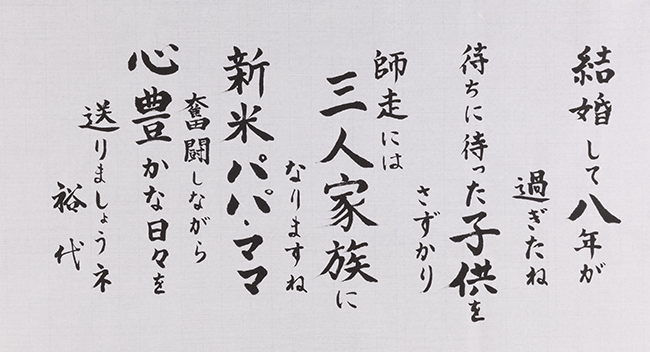 結婚して八年が
過ぎたね
待ちに待った子供を
さずかり
師走には
三人家族に
なりますね
新米パパ・ママ
奮闘しながら
心豊かな日々を
送りましょうネ
裕代